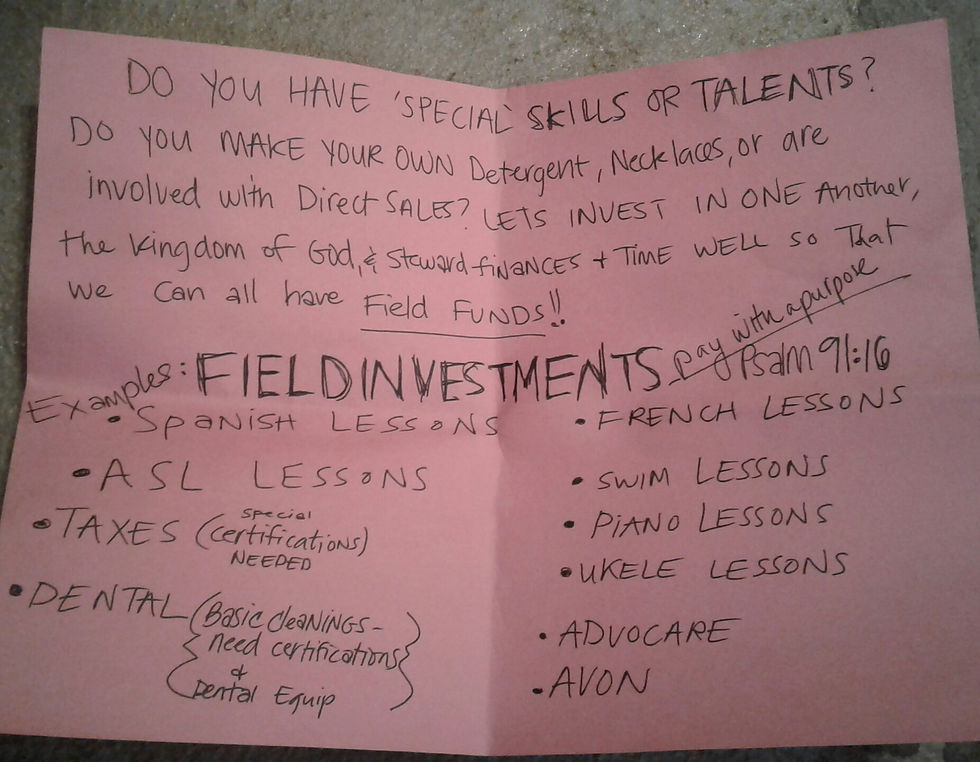 DO YOU HAVE 'SPECIAL' SKILLS OR TALENTS?
DO YOU MAKE YOUR OWN Detergent, Necklaces, or are
involved with Direct SALES? LETS INVEST IN ONE Another,
the kingdom of God, & Steward finANCES + TIME WELL so That
we can all have Field FUNDS!!
pay with a purpose
Examples: FIELD INVESTMENTS Psalm 91:16
• SPANISH LESSONS
• ASL LESSONS
• TAXES (special certifications NEEDED)
• DENTAL (Basic cleaNINGS -
need certifications
&
Dental Equip)
• FRENCH LESSONS
• SWIM LESSONS
• PiANO LESSONS
• UKELE LESSONS
• ADVOCARE
• AVON